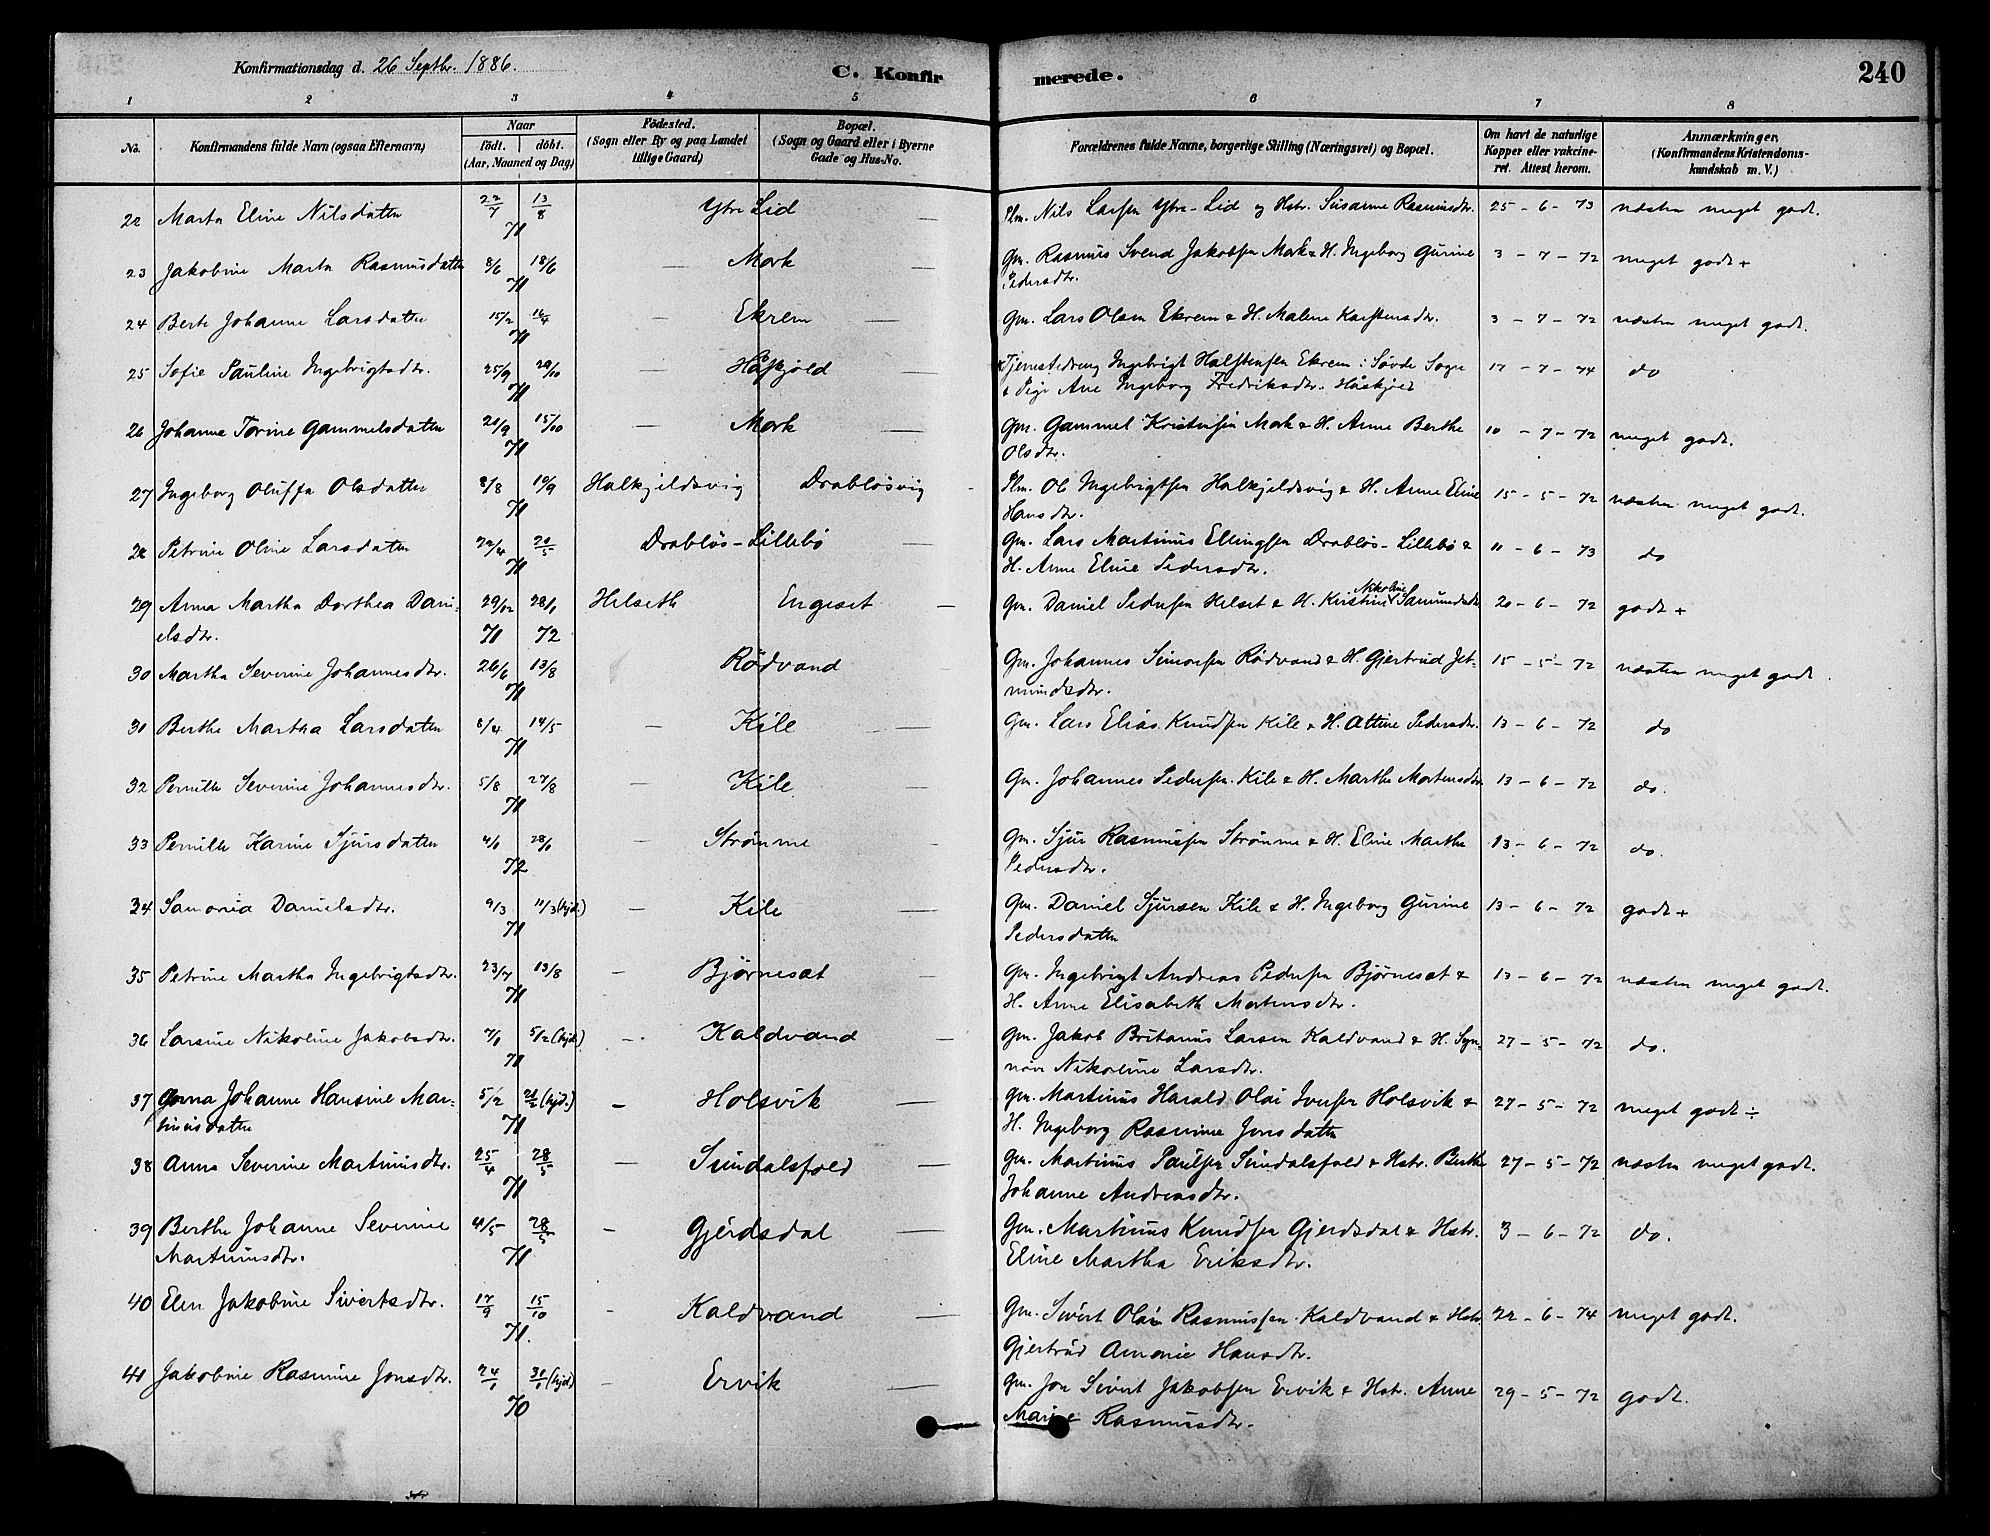 Konfirmationsdag d. 26 Septbr. 1886.
C. Konfir merede. 240
1 2 3 4 5 6 7 8
No. Konfirmandens fulde Navn (ogsaa Efternavn) Naar födt. döbt. (Aar, Maaned og Dag) Födested. (Sogn eller By og paa Landet tillige Gaard) Bopæl. (Sogn og Gaard eller i Byerne Gade og Hus-No. Forældrenes fulde Navne, borgerlige Stilling (Næringsvei) og Bopæl. Om havt de naturlige Kopper eller vakcineret. Attest herom. Anmærkninger. (Konfirmandens Kristendomskundskab m. V.)
22 Marta Eline Nilsdatter 22/7 13/8 71 Ytre Lid — Plm. Nils Larsen Ytre-Lid og Hstr. Susanne Rasmusdtr. 25 - 6 - 73 næsten meget godt.
23 Jakobine Marta Rasmusdatter 8/6 18/6 71 — Mork — Gm. Rasmus Svend Jakobsen Mork & H. Ingeborg Gurine
Pedersdtr. 3 - 7 - 72 meget godt +
24 Berte Johanne Larsdatter 15/2 16/4 71 — Ekrem — Gm. Lars Olsen Ekrem & H. Malene Karstensdtr. 3 - 7 - 72 næsten meget godt.
25 Sofie Pauline Ingebrigtsdtr. 25/9 29/10 71 — Håskjold — Tjenestedreng Ingebrigt Halstensen Ekrem i Søvde Sogn
& Pige Ane Ingeborg Fredriksdtr. Håskjold 17 - 7 - 74 do
26 Johanna Torine Gammelsdatter 21/9 15/10 71 — Mork — Gm. Gammel Kristensen Mork & H. Anne Berthe
Olsdtr. 10 - 7 - 72 meget godt.
27 Ingeborg Oluffa Olsdatter 8/8 10/9 71 Halkjeldsvig Drabløsvig - Plm. Ol Ingebrigtsen Halkjeldsvig & H. Anne Eline
Hansdtr. 15 - 5 - 72 næsten meget godt.
28 Petrine Oline Larsdatter 22/4 20/5 71 Drabløs-Lillebø — Gm. Lars Martinus Ellingsen Drabløs-Lillebø &
H. Anne Eline Pedersdtr. 11 - 6 - 73 do
29 Anna Martha Dorthea Dani-
elsdtr. 29/12 71 28/1 72 Helseth Engeset — Gm. Daniel Pedersen Helset & H. Kristine Nikoline Samundsdtr. 20 - 6 - 72 godt +
30 Martha Severine Johannesdtr. 26/6 13/8 71 Rødvand — Gm. Johannes Simonsen Rødvand & H. Gjertrud Jet-
mundsdtr. 15 - 5 - 72 næsten meget godt.
31 Berthe Martha Larsdatter 8/4 14/5 71 — Kile — Gm. Lars Elias Knudsen Kile & H. Attine Pedersdtr. 13 - 6 - 72 do
32 Pernille Severine Johannesdtr. 5/8 27/8 71 — Kile — Gm. Johannes Pedersen Kile & H. Marthe Mortensdtr. 13 - 6 - 72 do.
33 Pernille Karine Sjursdatter 4/1 28/1 72 — Strømme — Gm. Sjur Rasmussen Strømme & H. Eline Marthe
Pedersdtr. 13 - 6 - 72 do.
34 Samona Danielsdtr. 9/3 11/3 (hjd.) 71 — Kile — Gm. Daniel Sjursen Kile & H. Ingeborg Gurine
Pedersdatter 13 - 6 - 72 godt +
35 Petrine Martha Ingebrigtsdtr. 23/7 13/8 71 — Bjørneset — Gm. Ingebrigt Andreas Pedersen Bjørneset &
H. Anne Elisabeth Mortensdtr. 13 - 6 - 72 næsten meget godt.
36 Larsine Nikoline Jakobsdtr. 7/1 5/2 (hjd.) 71 — Kaldvand — Gm. Jakob Britanus Larsen Kaldvand & H. Syn-
nøv Nikoline Larsdtr. 27 - 5 - 72 do.
37 Johanne Hansine Mar-
tinusdatter 5/2 (hjd.) 71 — Holsvik — Gm. Martinus Harald Olai Iversen Holsvik &
H. Ingeborg Rasmine Jonsdatter 27 - 5 - 72 meget godt ÷
38 Anna Severine Martinusdtr. 25/4 28/5 71 — Sundalsfold — Gm. Martinus Paulsen Sundalsfold & Hstr. Berthe
Johanne Andreasdtr. 27 - 5 - 72 næsten meget godt.
39 Berthe Johanne Severine
Martinusdtr. 4/5 28/5 71 — Gjerdsdal — Gm. Martinus Knudsen Gjerdsdal & Hstr.
Eline Martha Eriksdtr. 3 - 6 - 72 do.
40 Elen Jakobine Sivertsdtr. 17/9 15/10 71. — Kaldvand — Gm. Sivert Olai Rasmussen Kaldvand & Hstr.
Gjertrud Amonie Hansdtr. 22 - 6 - 74 meget godt.
41 Jakobine Rasmine Jonsdtr. 24/1 30/1 (hjd) 70 — Ervik — Gm. Jon Sivert Jakobsen Ervik & Hstr. Anne
Marie Rasmusdtr. 29 - 5 - 72 godt.